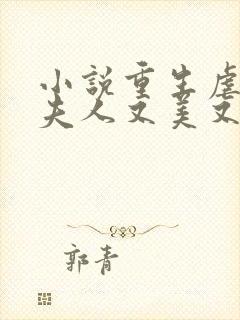 小說重生虐
夫人又美又
郭青